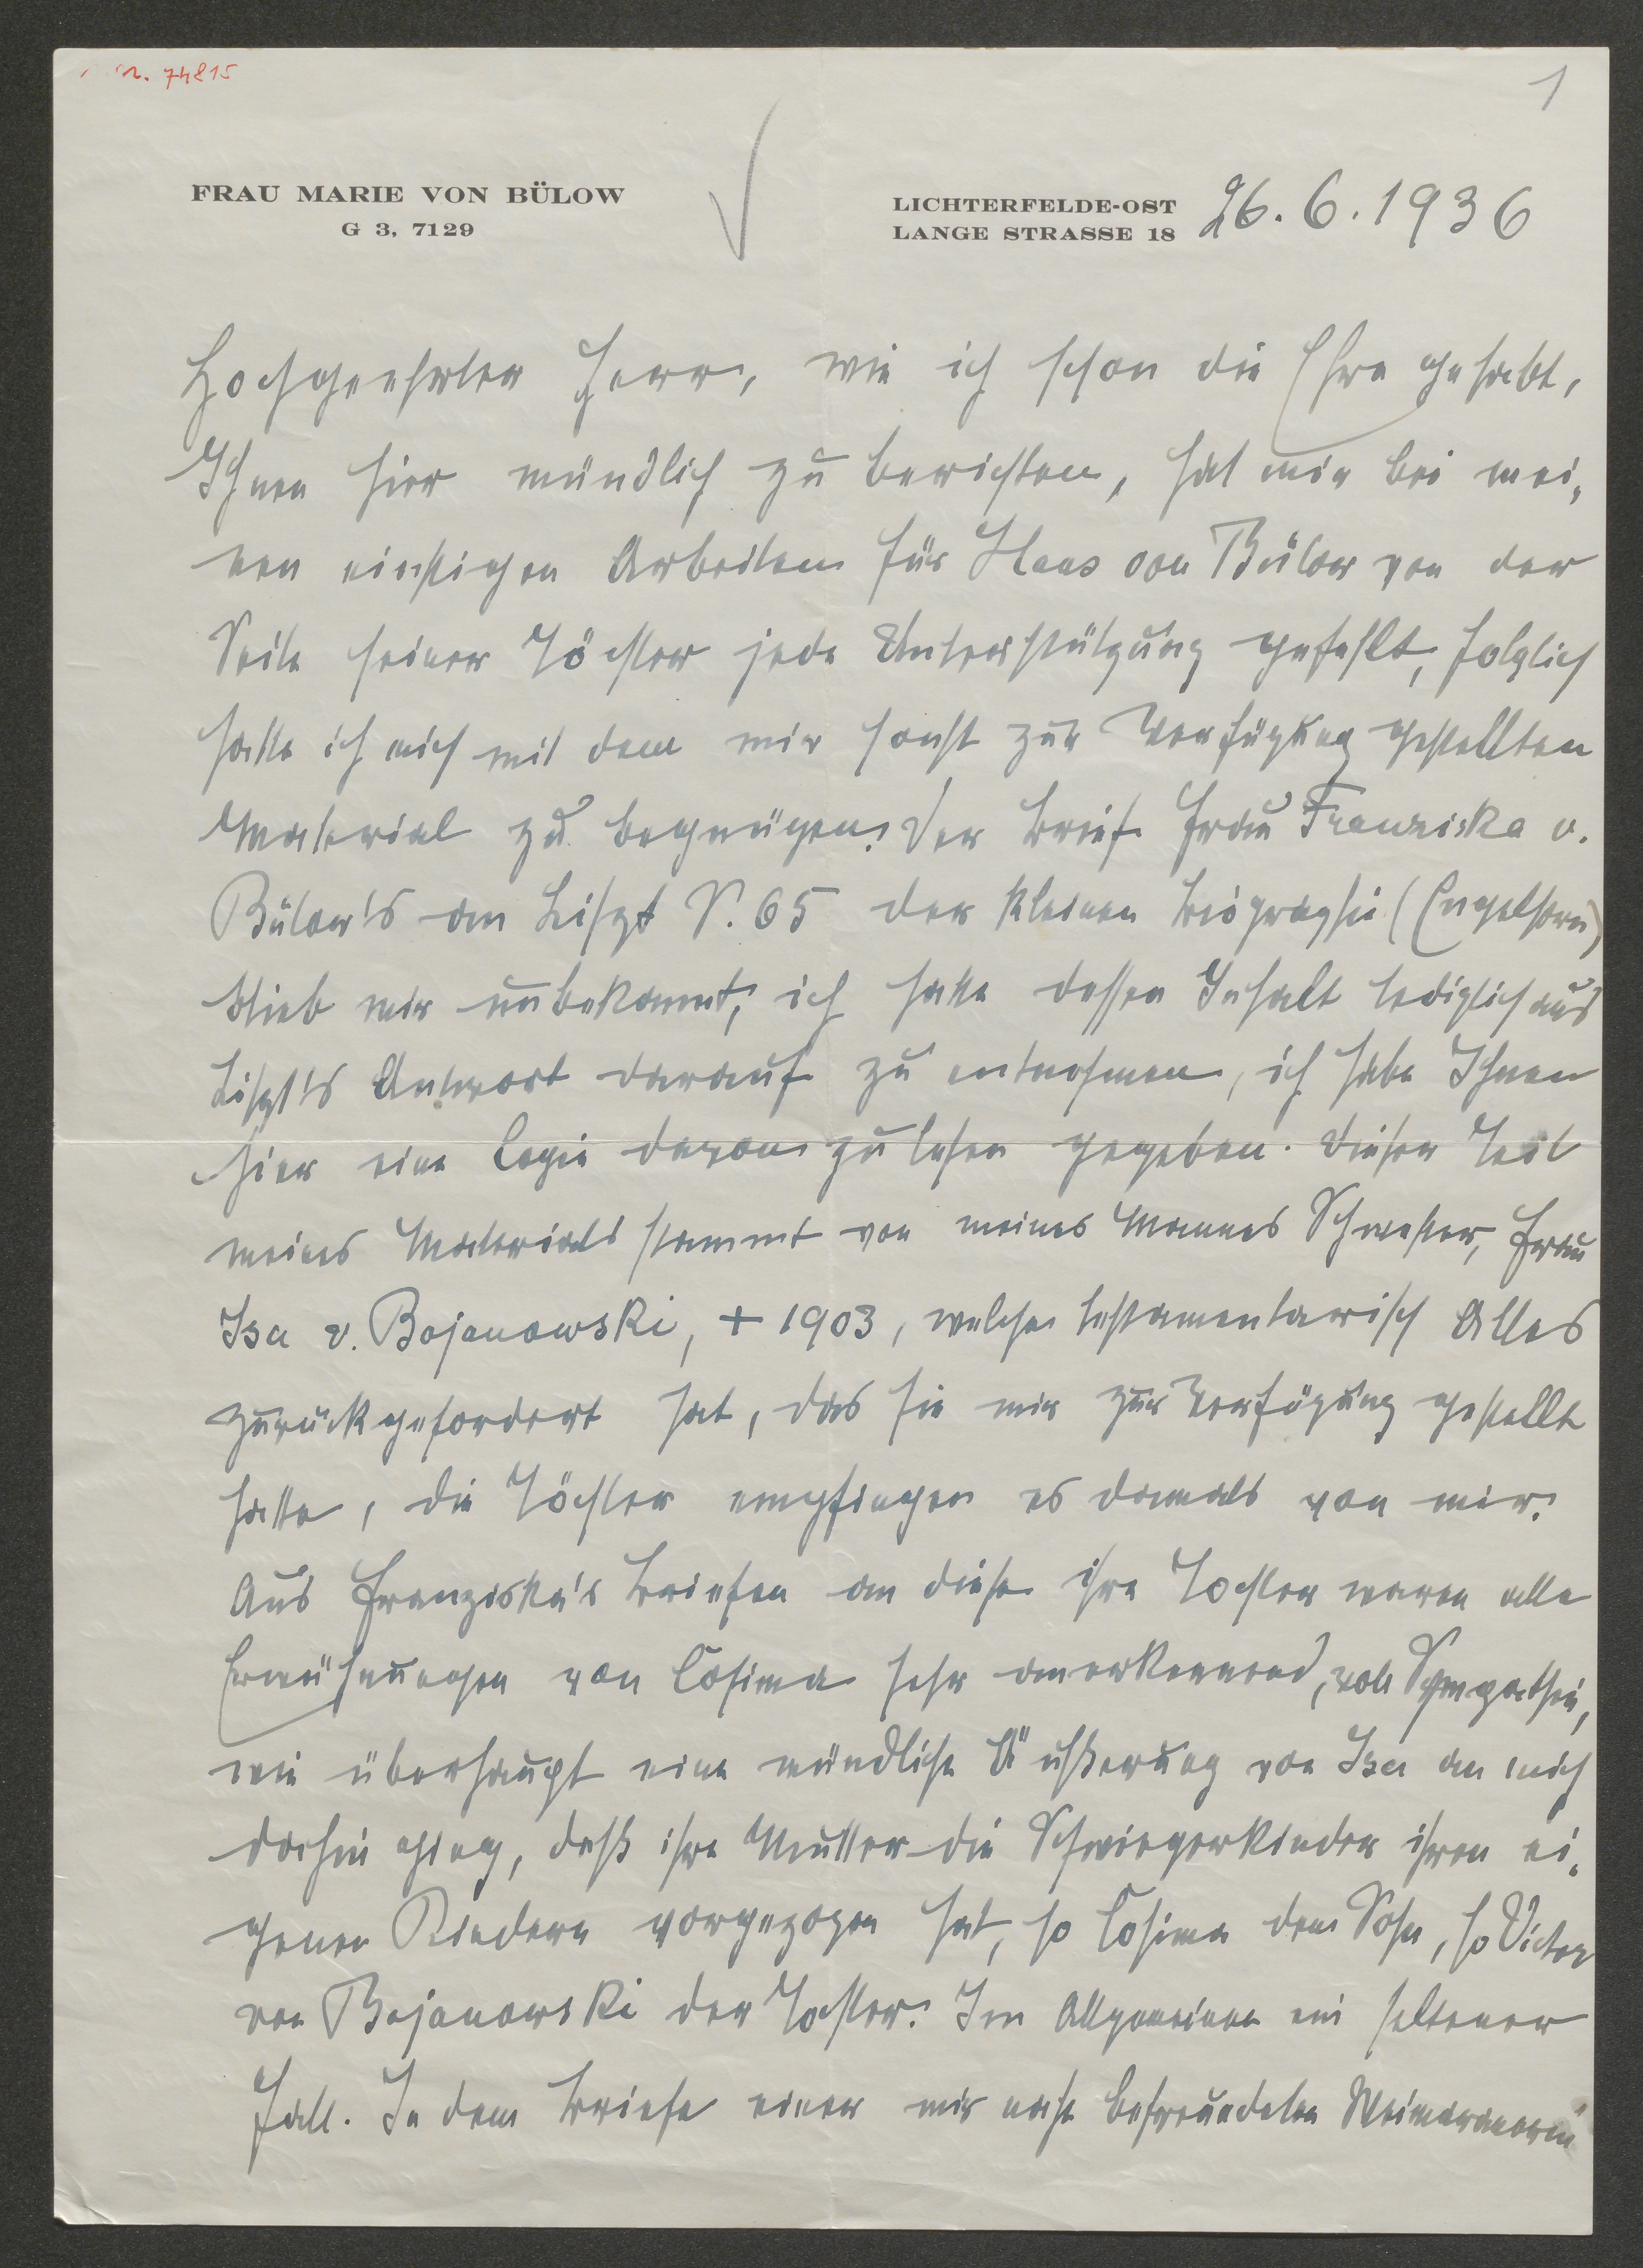 n. 74815
1
FRAU MARIE VON BÜLOW
G 3, 7129
LICHTERFELDE-OST
LANGE STRASSE 18
26. 6. 1936
Hochgeehrter Herr, wie ich schon die Ehre gehabt,
Ihnen hier mündlich zu berichten, hat mir bei mei-
nen einstigen Arbeiten für Hans von Bülow von der
Seite seiner Töchter jede Unterstützung gefehlt, folglich
hatte ich mich mit dem mir sonst zur Verfügung gestellten
Material zu begnügen. Der Brief Frau Franziska v.
Bülow's an Liszt S. 65 der kleinen Biographie (Engelhorn)
blieb mir unbekannt, ich hatte dessen Inhalt lediglich aus
Liszt's Antwort darauf zu entnehmen, ich habe Ihnen
hier eine Copie davon zu lesen gegeben. Dieser Teil
meines Materials stammt von meines Mannes Schwester, Frau
Isa v. Bojanowski, + 1903, welche testamentarisch Alles
zurückgefordert hat, das sie mir zur Verfügung gestellt
hatte, die Töchter empfingen es damals von mir.
Aus Franziska's Briefen an diese ihre Tochter waren alle
Erwähnungen von Cosima sehr anerkennend, voll Sympathie,
wie überhaupt eine mündliche Äußerung von Isa an mich
dahin ging, daß ihre Mutter die Schwiegerkinder ihren ei-
genen Kindern vorgezogen hat, so Cosima dem Sohn, so Victor
von Bojanowski der Tochter. Im Allgemeinen ein seltener
Fall. In dem Briefe einer mir nahe befreundeten Weimaranerin